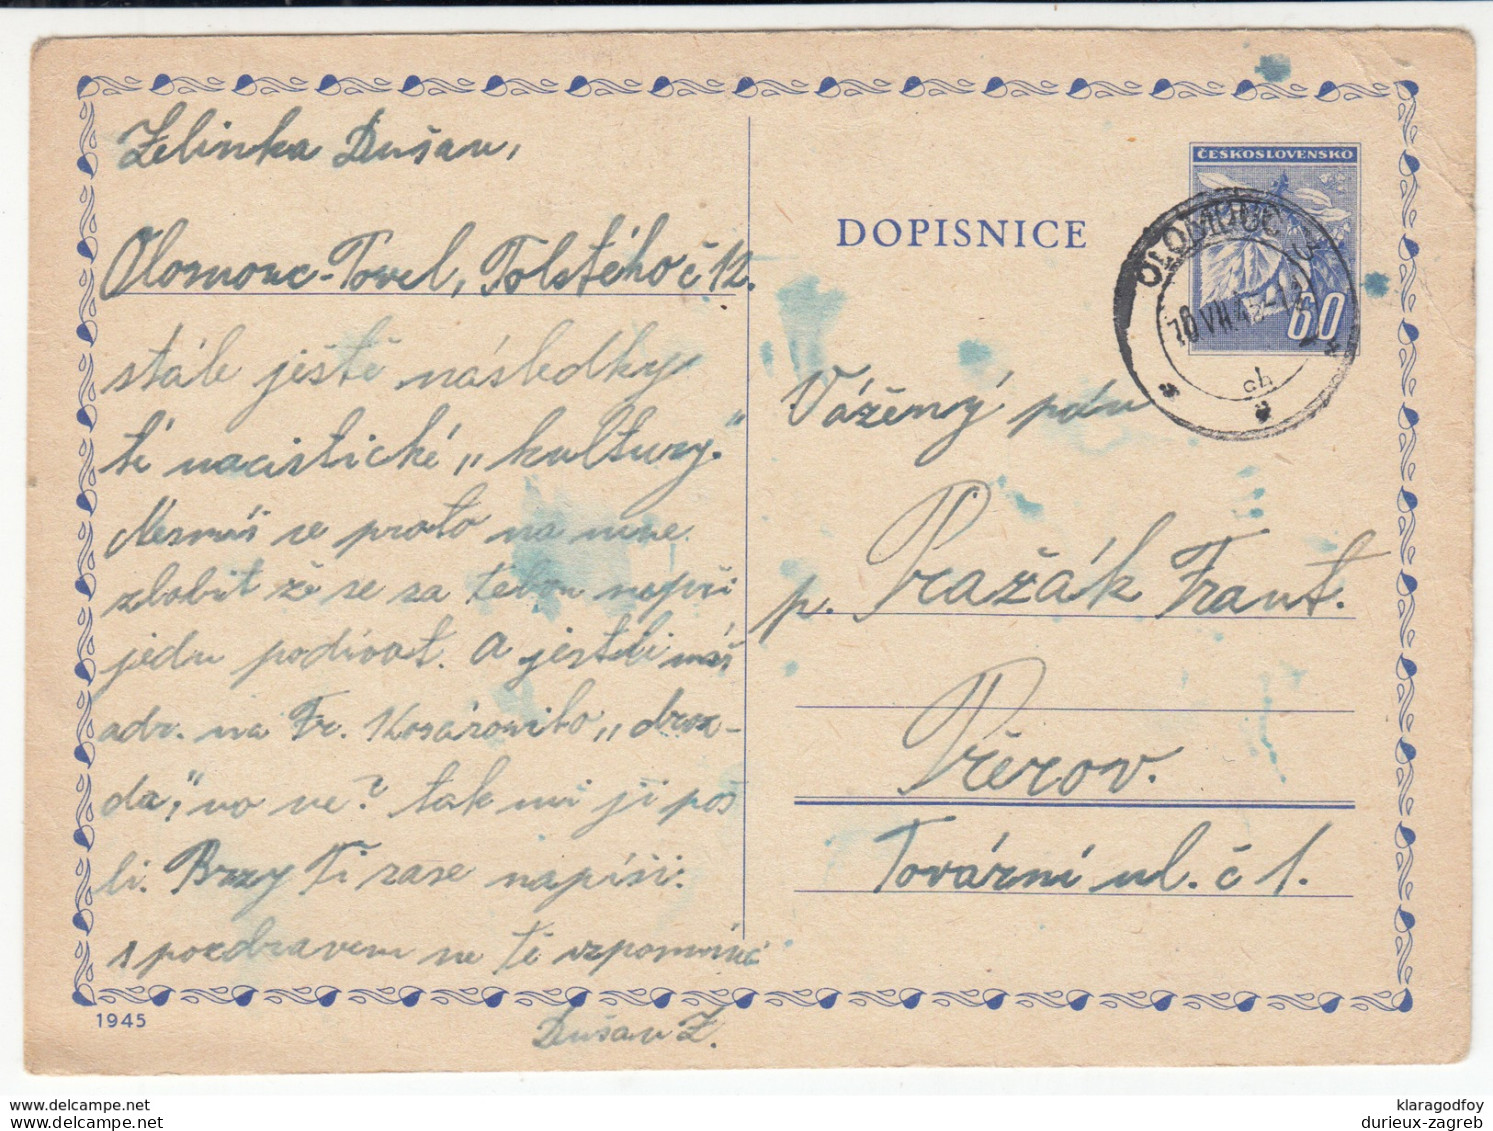 Zelinka Dušan,
Olomouc-Povel, Tolstého č 12.
stále ještě následky
té nacistické „kultury."
Nesmíš se proto na mne
zlobit že se za tebou nepři
jedu podívat. A jestli máš
adr. na Fr. „droz-
da," ne? tak mi ji poš
li. Brzy Ti zase napíši.
s pozdravem na tě vzpomíná
Dušan Z.
1945
DOPISNICE
ČESKOSLOVENSKO
60
OLOMOUC 3
VII.45
Vážený pán
p. Pražák Frant.
Přerov.
Tovární ul. č 1.
klaragodfoy
durieux-zagreb